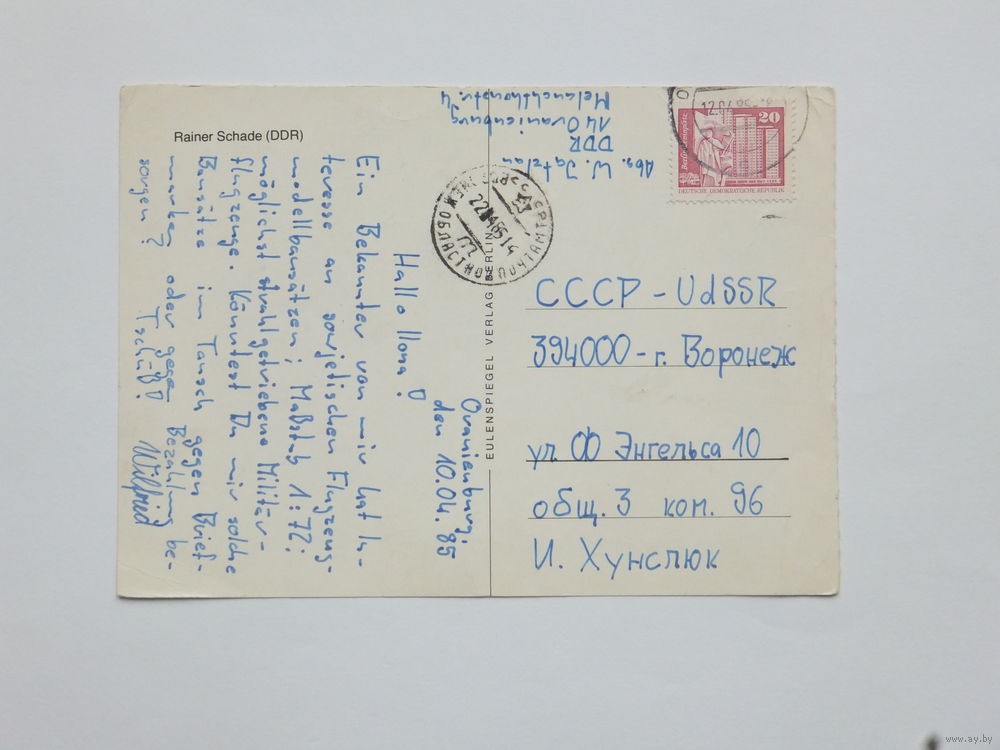 Rainer Schade (DDR)
Oranienburg,
den 10.04.85
Hallo Ilona!
Ein Bekannter von mir hat In-
teresse an sowjetischen Flugzeug-
modellbausätzen; Maßstab 1:72;
möglichst strahlgetriebene Militär-
flugzeuge. Könntest Du mir solche
Bausätze im Tausch gegen Brief-
marken oder gegen Bezahlung be-
sorgen?
Tschüß!
Wilfried
EULENSPIEGEL VERLAG BERLIN
Abs. W. Jatzlau
DDR
140 Oranienburg
Melanchthonstr. 4
20
Berlin
DEUTSCHE DEMOKRATISCHE REPUBLIK
12.04.85
СССР
ОБЛАСТНОЙ ПОЧТАМТ
22 485 14
СССР - UdSSR
394000 - г. Воронеж
ул. Ф Энгельса 10
общ. 3 ком. 96
И. Хунслюк
www.ay.by